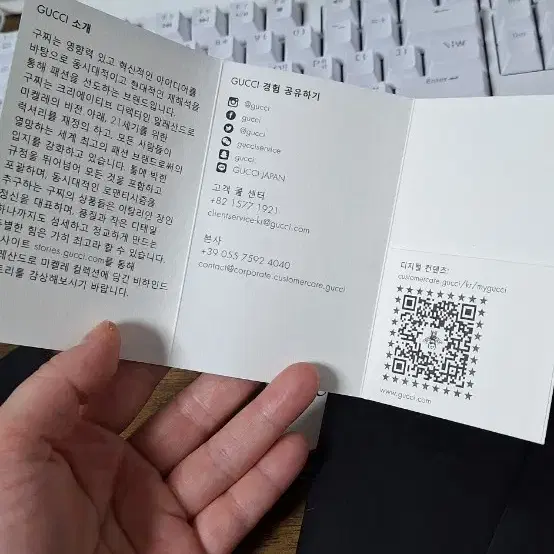 GUCCI 소개
구찌는 영향력 있고 혁신적인 아이디어를
바탕으로 동시대적이고 현대적인 재해석을
통해 패션을 선도하는 브랜드입니다.
구찌는 크리에이티브 디렉터인 알레산드로
미켈레의 비전 아래, 21세기를 위한
럭셔리를 재정의 하고, 모든 사람들이
열망하는 세계 최고의 패션 브랜드로써의
입지를 강화하고 있습니다. 틀에 박힌
규정을 뛰어넘어 모든 것을 포함하고
포괄하며, 동시대적인 로맨티시즘을
추구하는 구찌의 상품들은 이탈리안 장인
정신을 대표하며, 품질과 작은 디테일
하나까지도 섬세하고 정교하게 만드는
특별한 힘은 가히 최고라 할 수 있습니다.
사이트 stories.gucci.com을 통해
레산드로 미켈레 컬렉션에 담긴 비하인드
토리를 감상해보시기 바랍니다.
GUCCI 경험 공유하기
@gucci
gucci
@gucci
gucciservice
gucci
GUCCI JAPAN
고객 콜 센터
+82 1577 1921
clientservice-kr@gucci.com
본사
+39 055 7592 4040
contact@corporate.customercare.gucci
디지털 컨텐츠:
customercare.gucci/kr/mygucci
www.gucci.com